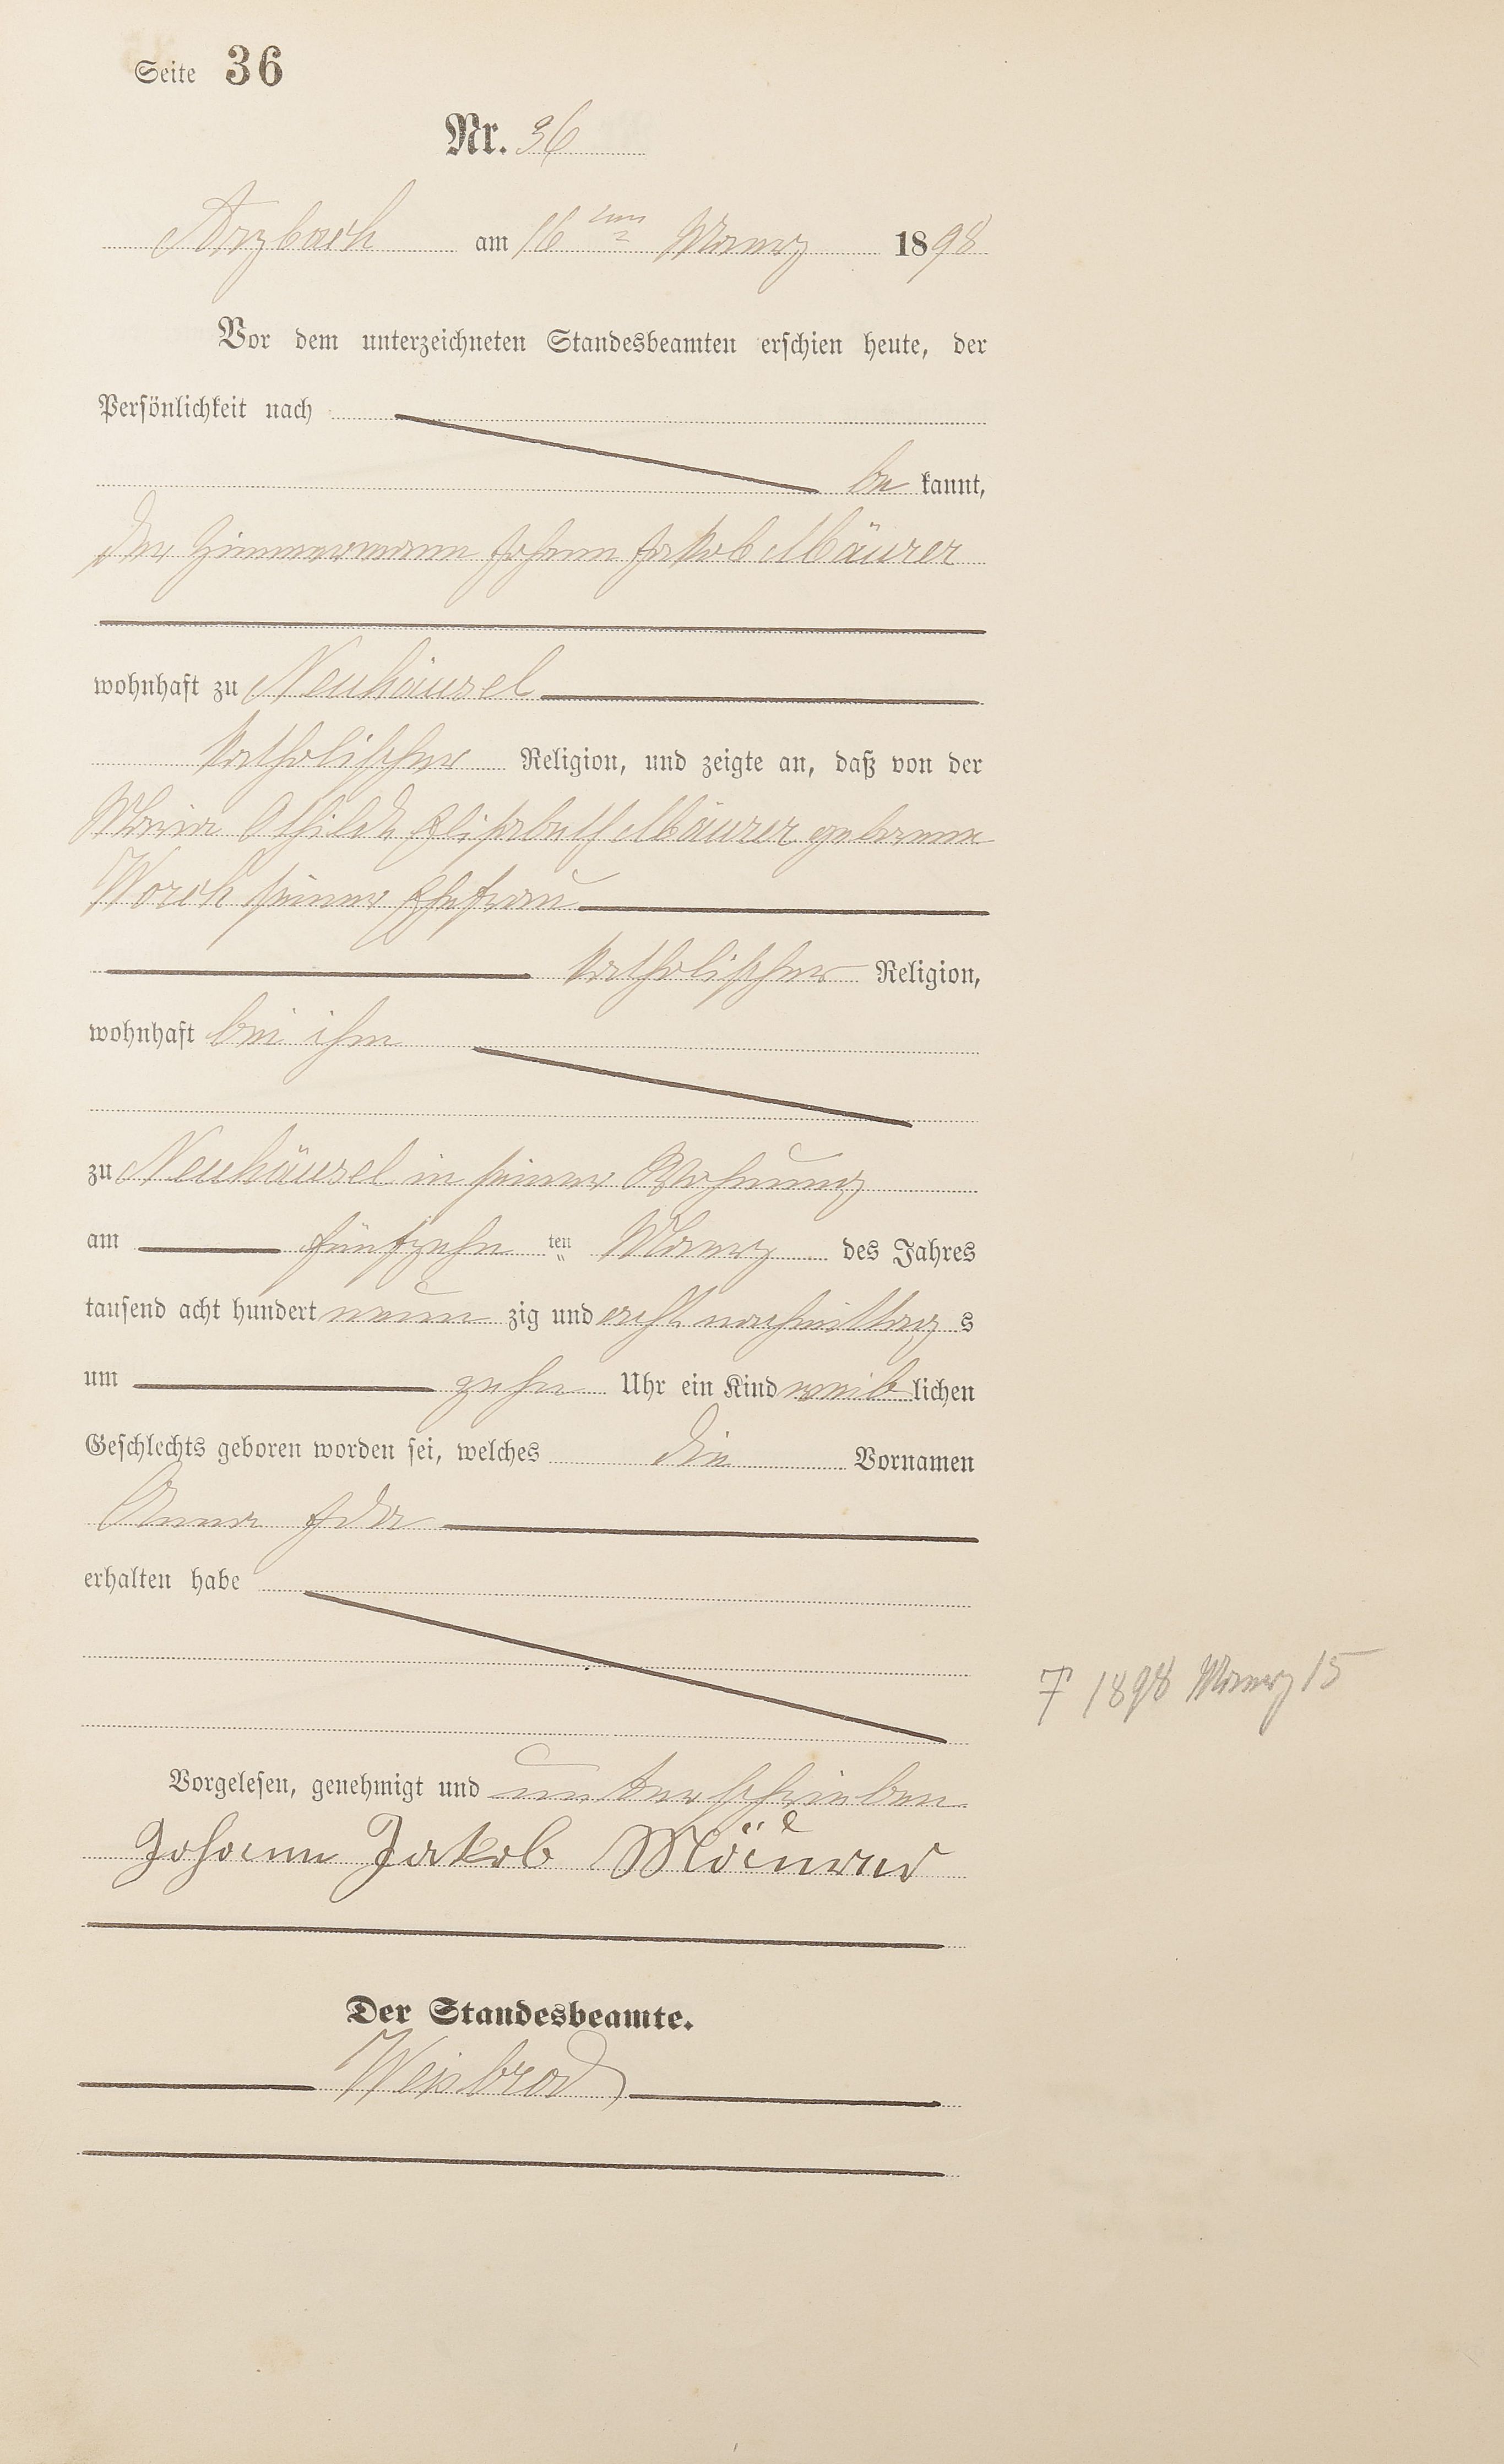 Seite 36
Nr. 36
Arzbach am 16ten Maerz 1898
Vor dem unterzeichneten Standesbeamten erschien heute, der
Persönlichkeit nach
be kannt,
der Zimmermann Johann Jakob Mäurer
wohnhaft zu Neuhäusel
katholischer Religion, und zeigte an, daß von der
Maria Othilde Elisabeth Mäurer geborene
Worch seiner Ehefrau
katholischer Religion,
wohnhaft bei ihm
zu Neuhäusel in seiner Wohnung
am fünfzehn ten Maerz des Jahres
tausend acht hundert neun zig und acht nachmittag s
um zehn Uhr ein Kind weib lichen
Geschlechts geboren worden sei, welches die Vornamen
Anna Ida
erhalten habe
† 1898 Maerz 15
Vorgelesen, genehmigt und unterschrieben
Johann Jakob Mäurer
Der Standesbeamte.
Weisbrod